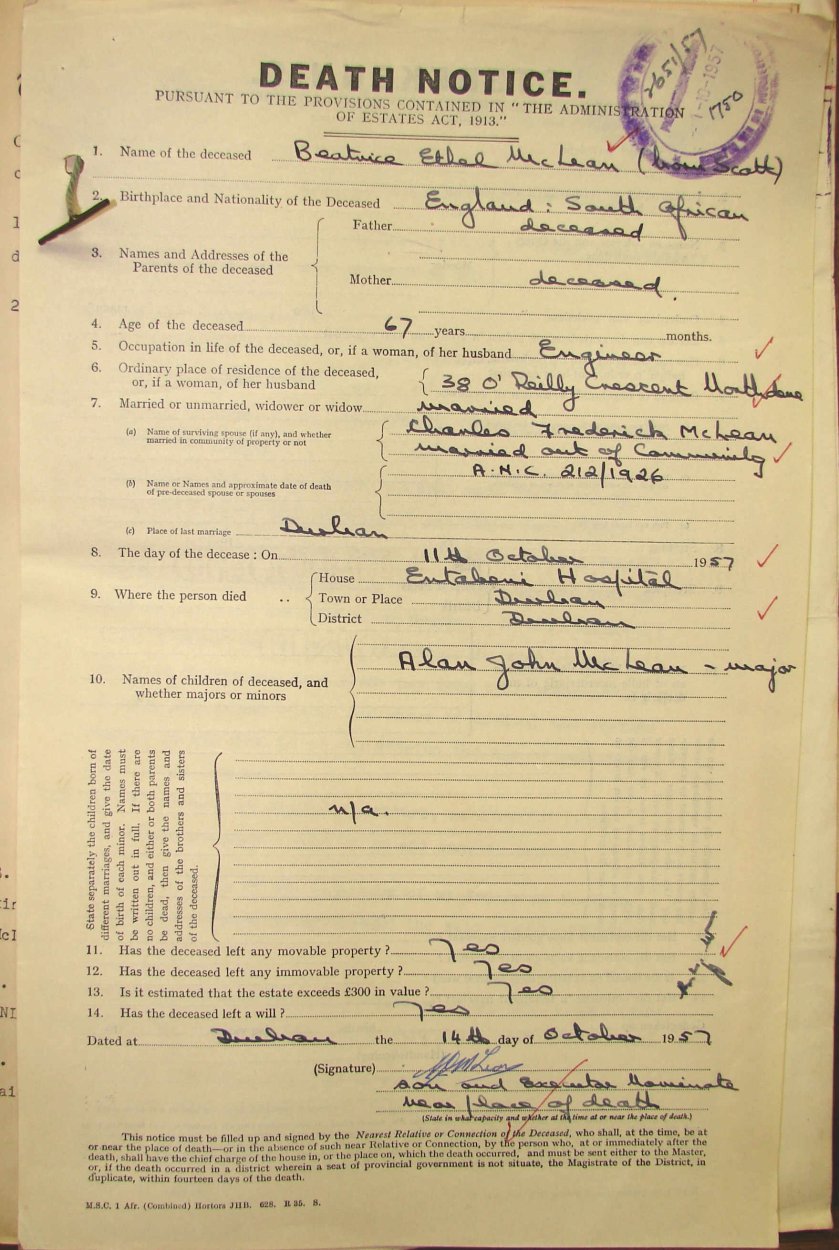 DEATH NOTICE.
PURSUANT TO THE PROVISIONS CONTAINED IN "THE ADMINISTRATION
OF ESTATES ACT, 1913."
2651/57
1750
1. Name of the deceased Beatrice Ethel McLean (born Scott)
2. Birthplace and Nationality of the Deceased England: South African
3. Names and Addresses of the Parents of the deceased
Father deceased
Mother deceased.
4. Age of the deceased 67 years months.
5. Occupation in life of the deceased, or, if a woman, of her husband Engineer
6. Ordinary place of residence of the deceased,
or, if a woman, of her husband 38 O'Reilly Crescent Northdene
7. Married or unmarried, widower or widow married
(a) Name of surviving spouse (if any), and whether
married in community of property or not
Charles Frederick McLean
married out of Community
A.N.C. 212/1926
(b) Name or Names and approximate date of death
of pre-deceased spouse or spouses
(c) Place of last marriage Durban
8. The day of the decease : On 11th October 1957
9. Where the person died ..
House Entabeni Hospital
Town or Place Durban
District Durban
10. Names of children of deceased, and
whether majors or minors
Alan John McLean - major
State separately the children born of
different marriages, and give the date
of birth of each minor. Names must
be written out in full. If there are
no children, and either or both parents
be dead, then give the names and
addresses of the brothers and sisters
of the deceased.
n/a.
11. Has the deceased left any movable property ? Yes
12. Has the deceased left any immovable property ? Yes
13. Is it estimated that the estate exceeds £300 in value ? Yes
14. Has the deceased left a will ? Yes
Dated at Durban the 14th day of October 1957
(Signature)
son and Executor Nominate
near place of death
(State in what capacity and whether at the time at or near the place of death.)
This notice must be filled up and signed by the Nearest Relative or Connection of the Deceased, who shall, at the time, be at
or near the place of death—or in the absence of such near Relative or Connection, by the person who, at or immediately after the
death, shall have the chief charge of the house in, or the place on, which the death occurred, and must be sent either to the Master,
or, if the death occurred in a district wherein a seat of provincial government is not situate, the Magistrate of the District, in
duplicate, within fourteen days of the death.
M.S.C. 1 Afr. (Combined) Hortors JHB. 628. R 35. S.